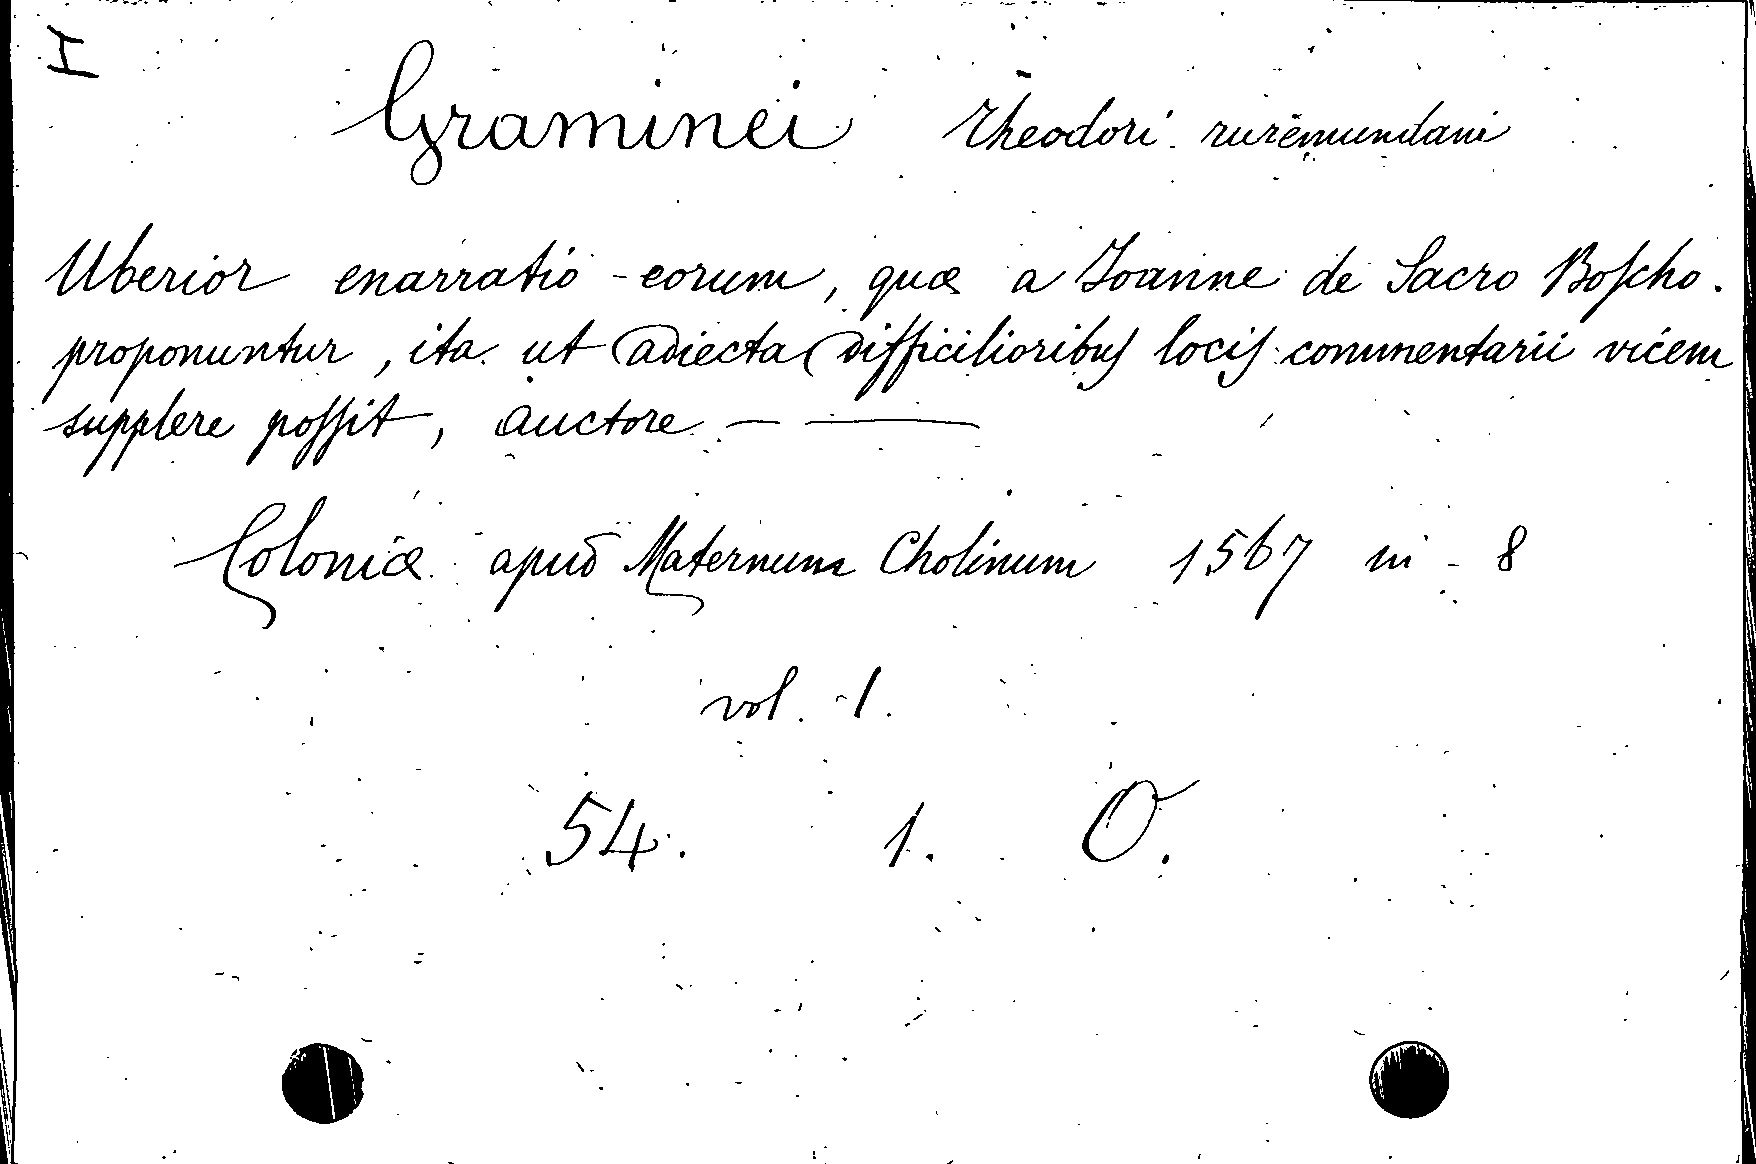 I
Graminei Theodori ruremundani
Uberior enarratio eorum, quæ a Joanne de Sacro Boſcho.
proponuntur, ita ut adiecta difficilioribuſ lociſ commentarii vicem
supplere poſſit, auctore — ———
Coloniæ apud Maternum Cholinum 1567 in - 8
vol. 1.
54. 1. O.